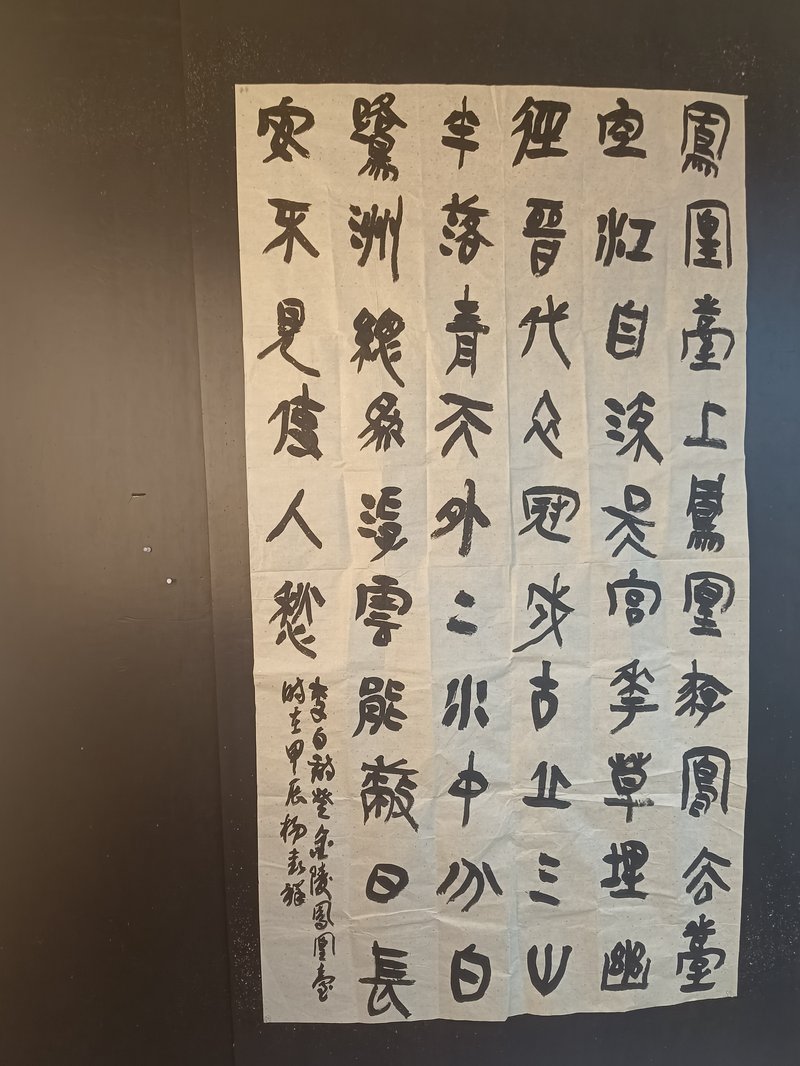 鳳凰臺上鳳凰遊鳳去臺
空江自流吳宮花草埋幽
徑晉代衣冠成古丘三山
半落青天外二水中分白
鷺洲總為浮雲能蔽日長
安不見使人愁
李白詩登金陵鳳凰臺
時在甲辰楊祥